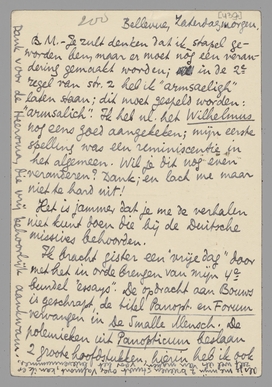 200
Bellevue, Zaterdagmorgen.
B.M. - Je zult denken dat ik stapel ge-
worden ben, maar er moet nog een veran-
dering gemaakt worden; in de 2e
regel van str. 2 heb ik "armsaeligh"
laten staan; dit moet gespeld worden:
"armsalich". Ik heb nl. het Wilhelmus
nog eens goed aangekeken; mijn eerste
spelling was een reminiscentie in
het algemeen. Wil je dit nog even
veranderen? Dank; en lach me maar
niet te hard uit!
Het is jammer dat je me de verhalen
niet kunt doen die bij de Duitsche
missives behoorden.
Ik bracht gister een "vrije dag" door
met het in orde brengen van mijn 4e
bundel "essays". De opdracht aan Bouws
is geschrapt, de titel Panopt. en Forum
vervangen in De Smalle Mensch. De
polemieken uit Panopticum beslaan
2 groote hoofdstukken, hierin heb ik ook
Dank voor de Hierona, die vrij behoorlijk aankwam